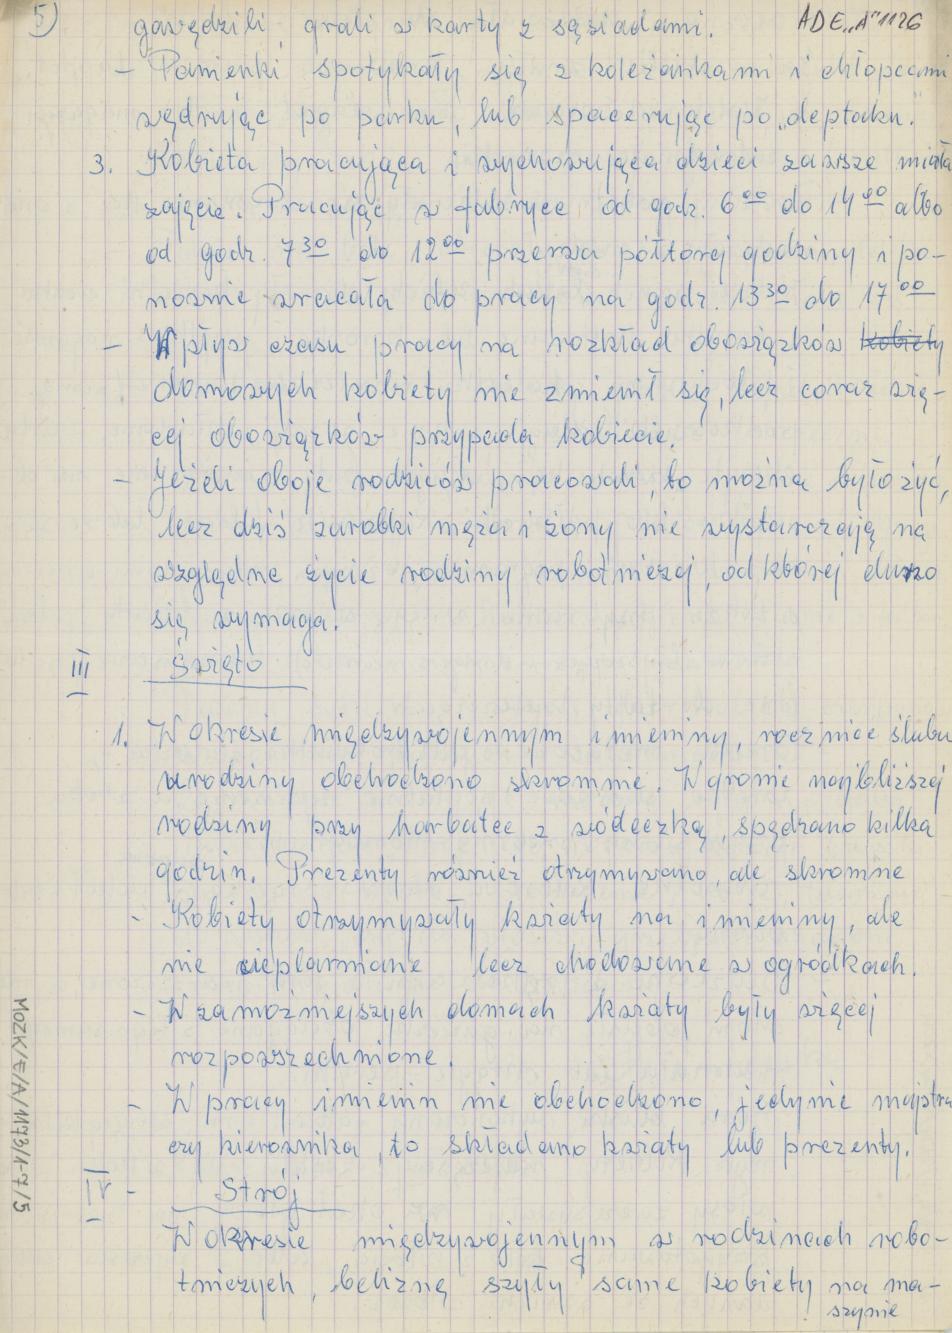 5)
ADE „A" 1126
gawędzili, grali w karty z sąsiadami.
- Panienki spotykały się z koleżankami i chłopcami
wędrując po parku, lub spacerując po „deptaku."
3. Kobieta pracująca i wychowująca dzieci zawsze miała
zajęcie. Pracując w fabryce od godz. 6 00 do 14 00 albo
od godz. 7 30 do 12 00 przerwa półtorej godziny i po-
nownie wracała do pracy na godz. 13 30 do 17 00
- Wpływ czasu pracy na rozkład obowiązków kobiety
domowych kobiety nie zmienił się, lecz coraz wię-
cej obowiązków przypada kobiecie.
- Jeżeli oboje rodziców pracowali, to można było żyć,
lecz dziś zarobki męża i żony nie wystarczają na
względne życie rodziny robotniczej, od której dużo
się wymaga.
III Święto
1. W okresie międzywojennym imieniny, rocznice ślubu
urodziny obchodzono skromnie. W gronie najbliższej
rodziny przy harbatce z wódeczką, spędzano kilka
godzin. Prezenty również otrzymywano, ale skromne
- Kobiety otrzymywały kwiaty na imieniny, ale
nie cieplarniane lecz chodowane w ogródkach.
- W zamożniejszych domach kwiaty były więcej
rozpowszechnione.
- W pracy imienin nie obchodzono, jedynie majstra
czy kierownika, to składano kwiaty lub prezenty.
IV - Strój
W okresie międzywojennym w rodzinach robo-
tniczych, bieliznę szyły same kobiety na ma-
szynie
MOZK/E/A/1173/1-7/5